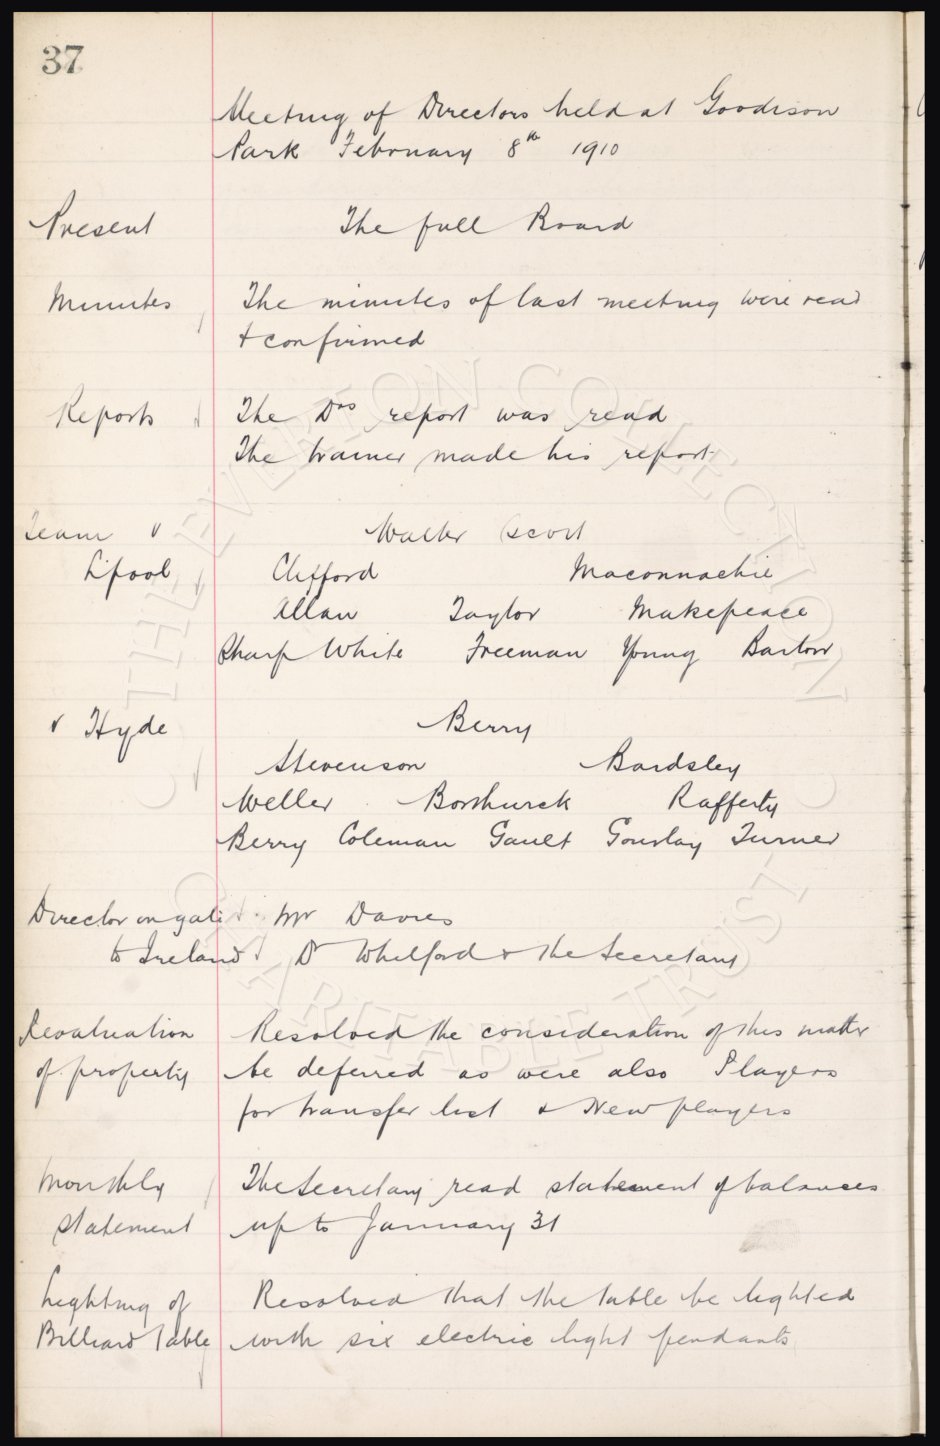 37
Meeting of Directors held at Goodison
Park February 8th 1910
Present The full Board
Minutes The minutes of last meeting were read
& confirmed
Reports The Drs report was read
The trainer made his report
Team v Walter Scott
L'pool Clifford Maconnachie
Allan Taylor Makepeace
Sharp White Freeman Young Barlow
v Hyde Berry
Stevenson Bardsley
Weller Borthwick Rafferty
Berry Coleman Gault Gourlay Turner
Director on gate Mr Davies
to Ireland Dr Whitford & the Secretary
Revaluation Resolved the consideration of this matter
of property be deferred as were also Players
for transfer list & New players
Monthly The Secretary read statement of balances
statement up to January 31
Lighting of Resolved that the table be lighted
Billiard Table with six electric light pendants
THE EVERTON COLLECTION
CHARITABLE TRUST